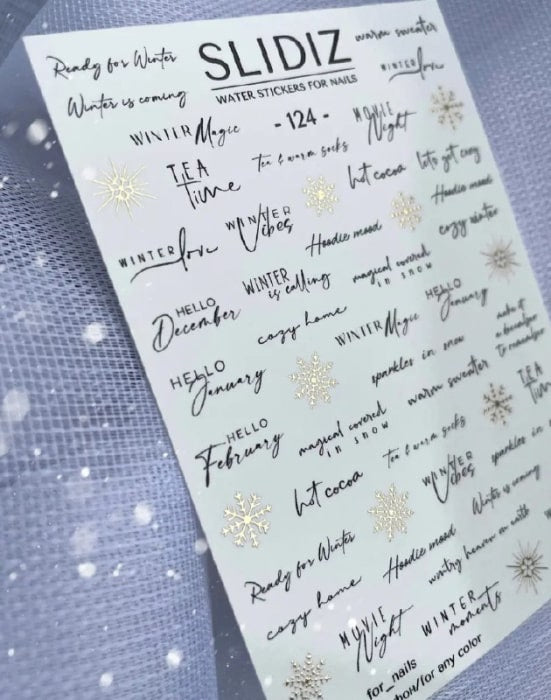 Ready for Winter
SLIDIZ
warm sweater
WATER STICKERS FOR NAILS
Winter is coming
WINTER love
- 124 -
WINTER Magic
MOVIE
Night
TEA
Time
Tea & warm socks
hot cocoa
lets get cozy
Hoodie mood
WINTER love
WINTER
Vibes
Hoodie mood
cozy winter
WINTER
is calling
magical covered
in snow
HELLO
December
cozy home
WINTER Magic
HELLO
January
HELLO
January
sparkles in snow
make it
a december
to remember
HELLO
February
magical covered
in snow
warm sweater
TEA
Time
hot cocoa
Tea & warm socks
WINTER
Vibes
sparkles in
Ready for Winter
Hoodie mood
Winter is coming
cozy home
wintry heaven on earth
MOVIE
Night
WINTER
moments
for_nails
фон/for any color